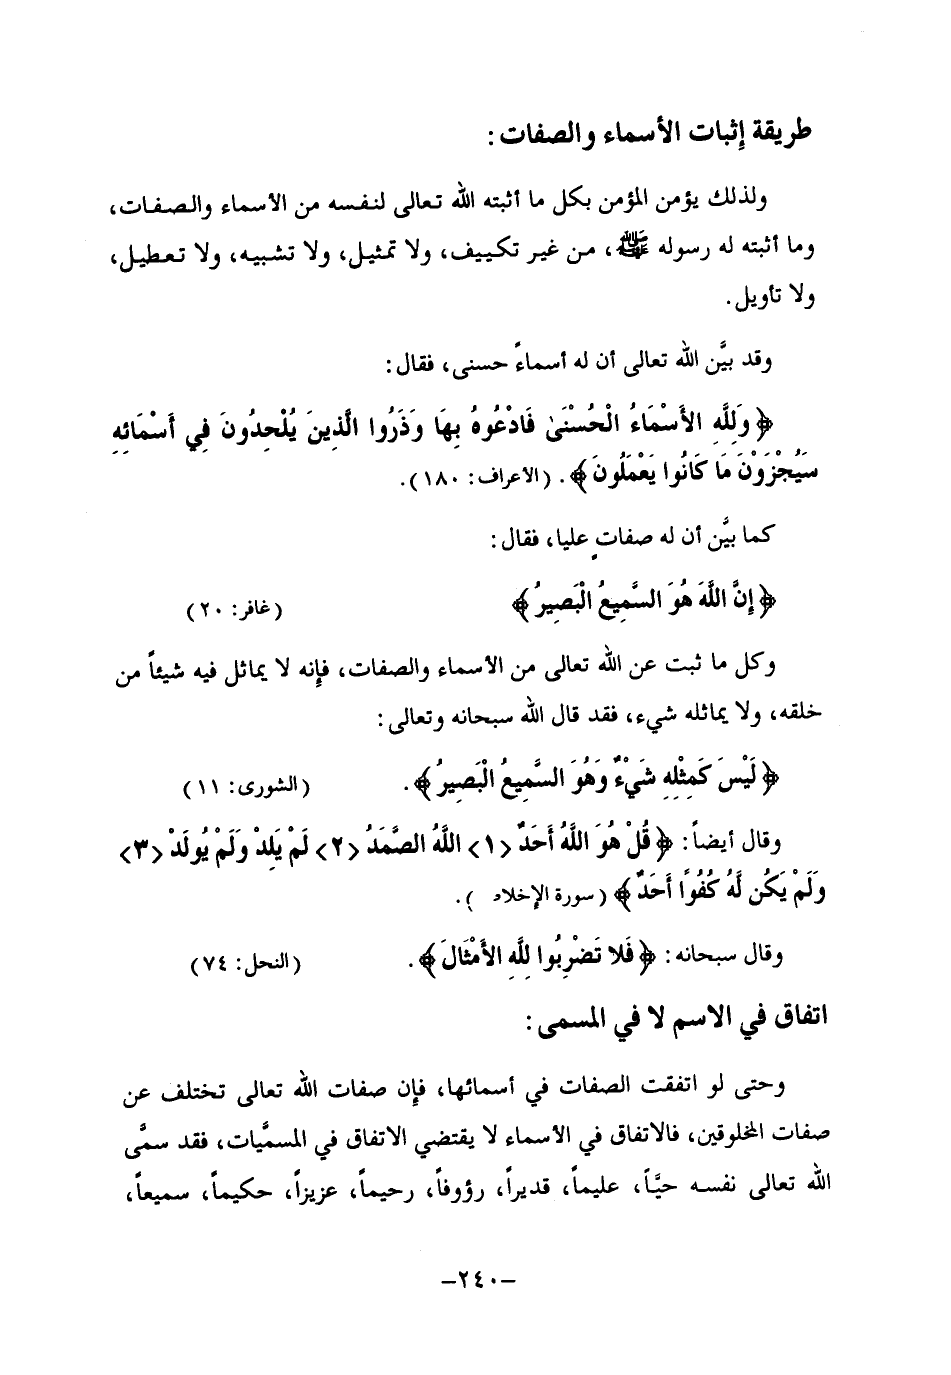 طريقة إثبات الأسماء والصفات :
ولذلك يؤمن المؤمن بكل ما أثبته الله تعالى لنفسه من الأسماء والصفات،
وما أثبته له رسوله ﷺ، من غير تكييف، ولا تمثيل، ولا تشبيه، ولا تعطيل،
ولا تأويل.
وقد بيَّن الله تعالى أن له أسماءً حسنى، فقال:
﴿وَلِلَّهِ الأَسْمَاءُ الْحُسْنَىٰ فَادْعُوهُ بِهَا وَذَرُوا الَّذِينَ يُلْحِدُونَ فِي أَسْمَائِهِ
سَيُجْزَوْنَ مَا كَانُوا يَعْمَلُونَ﴾. (الأعراف: ١٨٠).
كما بيَّن أن له صفاتٍ عليا، فقال:
﴿إِنَّ اللَّهَ هُوَ السَّمِيعُ الْبَصِيرُ﴾ (غافر: ٢٠)
وكل ما ثبت عن الله تعالى من الأسماء والصفات، فإنه لا يماثل فيه شيئاً من
خلقه، ولا يماثله شيء، فقد قال الله سبحانه وتعالى:
﴿لَيْسَ كَمِثْلِهِ شَيْءٌ وَهُوَ السَّمِيعُ الْبَصِيرُ﴾. (الشورى: ١١)
وقال أيضاً: ﴿قُلْ هُوَ اللَّهُ أَحَدٌ <١> اللَّهُ الصَّمَدُ <٢> لَمْ يَلِدْ وَلَمْ يُولَدْ <٣>
وَلَمْ يَكُن لَّهُ كُفُوًا أَحَدٌ﴾ (سورة الإخلاص).
وقال سبحانه: ﴿فَلا تَضْرِبُوا لِلَّهِ الأَمْثَالَ﴾. (النحل: ٧٤)
اتفاق في الاسم لا في المسمى:
وحتى لو اتفقت الصفات في أسمائها، فإن صفات الله تعالى تختلف عن
صفات المخلوقين، فالاتفاق في الأسماء لا يقتضي الاتفاق في المسمَّيات، فقد سمَّى
الله تعالى نفسه حيَّاً، عليماً، قديراً، رؤوفاً، رحيماً، عزيزاً، حكيماً، سميعاً،
-٢٤٠-